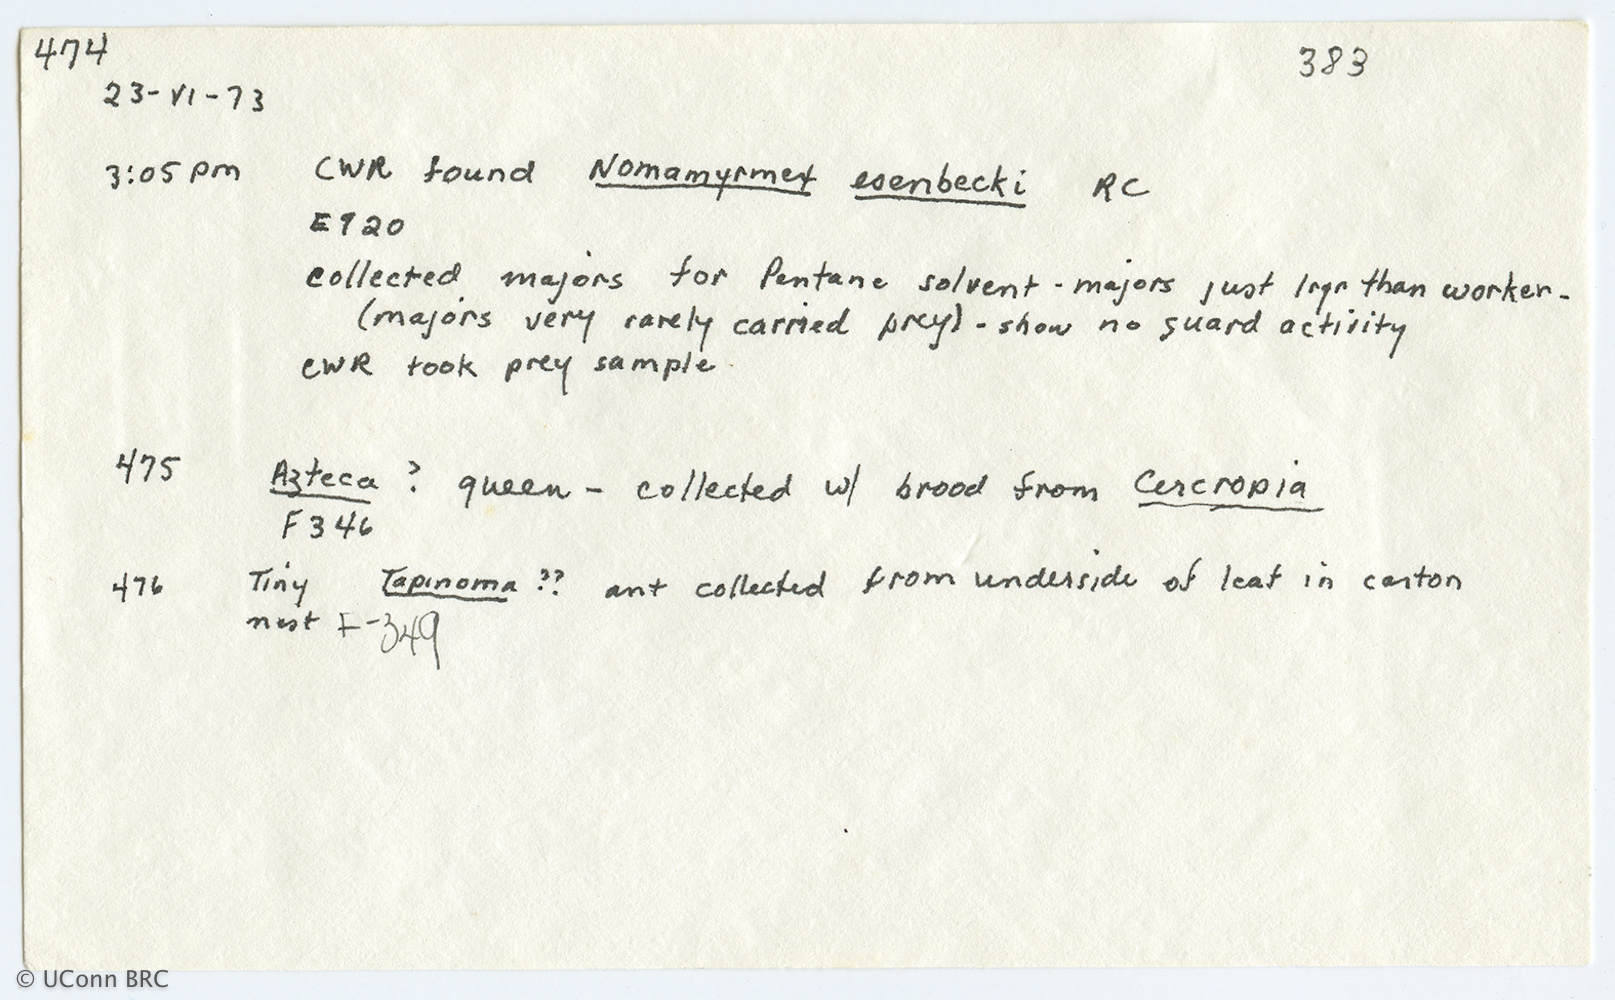 474
383
23-VI-73
3:05 pm CWR found Nomamyrmex esenbecki RC
E920
collected majors for Pentane solvent - majors just lrgr than worker -
(majors very rarely carried prey) - show no guard activity
CWR took prey sample
475 Azteca ? queen - collected w/ brood from Cercropia
F346
476 Tiny Tapinoma ?? ant collected from underside of leaf in carton
nest F-349
© UConn BRC